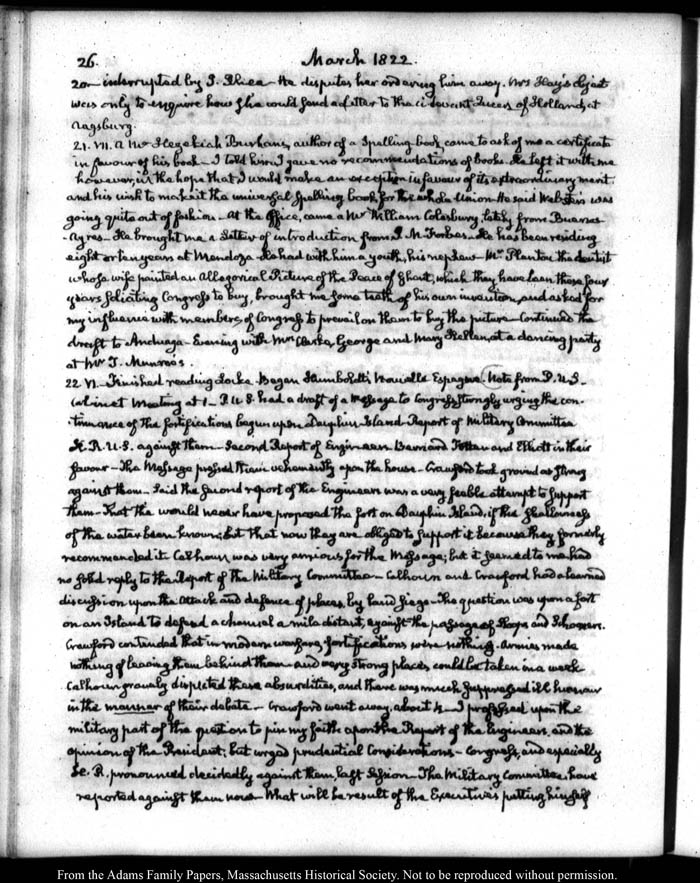 26.
March 1822.
20— interrupted by J. Rhea— He disputes her ordering him away. Mrs Hay's object
was only to enquire how she could send a letter to the ci-devant Queen of Holland, at
Augsburg.
21. VII. A Mr Hezekiah Burhans, author of a Spelling book, came to ask of me a certificate
in favour of his book— I told him I gave no recommendations of books. He left it with me
however, in the hope that I would make an exception in favour of its extraordinary merit
and his wish to make it the universal Spelling book for the whole Union. He said Webster's was
going quite out of fashion— At the Office, came a Mr William Colesbury, lately from Buenos-
-Ayres— He brought me a Letter of introduction from J. M. Forbes. He has been residing
eight or ten years at Mendoza. He had with him a youth, his nephew— Mr Plantou the dentist
whose wife painted an Allegorical Picture of the Peace of Ghent, which they have been these four
years soliciting Congress to buy, brought me some teeth of his own invention, and asked for
my influence with members of Congress to prevail on them to buy the picture— Continued the
draft to Anduaga— Evening with Mrs Clarke, George and Mary Hellen, at a dancing party
at Mr T. Munroe's.
22 VI. Finished reading Locke. Began Humboldt's Nouvelle Espagne. Note from P. U. S.
Cabinet Meeting at 1— P. U. S. had a draft of a Message to Congress, strongly urging the con-
tinuance of the fortifications begun upon Dauphin Island— Report of Military Committee
H. R. U. S. against them— Second Report of Engineers Bernard Totten and Elliott in their
favour— The Message pressed them vehemently upon the house— Crawford took ground as strong
against them— Said the second report of the Engineers was a very feeble attempt to support
them— That they would never have proposed the fort on Dauphin Island, if the shallowness
of the water been known; but that now they are obliged to support it because they formerly
recommended it. Calhoun was very anxious for the Message; but it seemed to me had
no solid reply to the Report of the Military Committee— Calhoun and Crawford had a learned
discussion upon the attack and defence of places, by land siege— The question was upon a fort
on an Island to defend a channel a mile distant, against the passage of Sloops and Schooners.
Crawford contended that in modern warfare, fortifications were nothing. Armies made
nothing of leaving them behind them— and very strong places could be taken in a week
Calhoun gravely disputed these absurdities, and there was much suppressed ill humour
in the manner of their debate— Crawford went away, about 4— I professed upon the
military part of the question to pin my faith upon the Report of the Engineers, and the
opinion of the President; but urged prudential considerations— Congress, and especially
H. R. pronounced decidedly against them, last Session— The Military Committee, have
reported against them now— What will be result of the Executive's putting himself
From the Adams Family Papers, Massachusetts Historical Society. Not to be reproduced without permission.